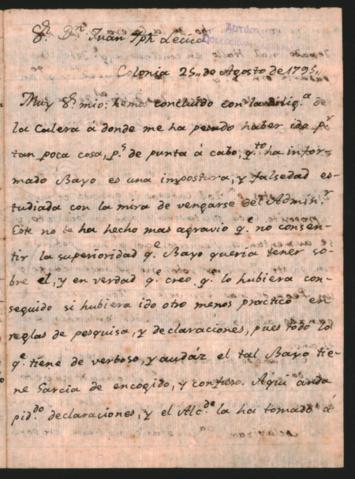 S.r D.n Juan Jph
Colonia 25 de Agosto de 1795
Muy S.r mio: hemos concluido con la dilig.a de
la Calera á donde me ha pesado haber ido p.r
tan poca cosa, p.s de punta á cabo q.to ha infor-
mado Bayo es una impostura, y falsedad es-
tudiada con la mira de vengarse del Admin.r
Este no le ha hecho mas agravio q.e no consen-
tir la superioridad q.e Bayo queria tener so-
bre el, y en verdad q.e creo q.e lo hubiera con-
seguido si hubiera ido otro menos practico en
reglas de pesquisa, y declaraciones, pues todo lo
q.e tiene de verboso, y audáz el tal Bayo tie-
ne Garcia de encogido, y confuso. Aqui anda
pid.do declaraciones, y el Alc.de la ha tomado á